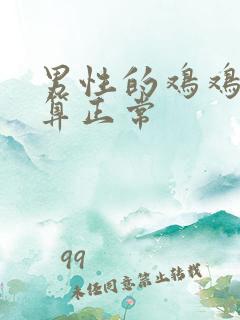 男性的鸡鸡
算正常
99
未经同意禁止转载